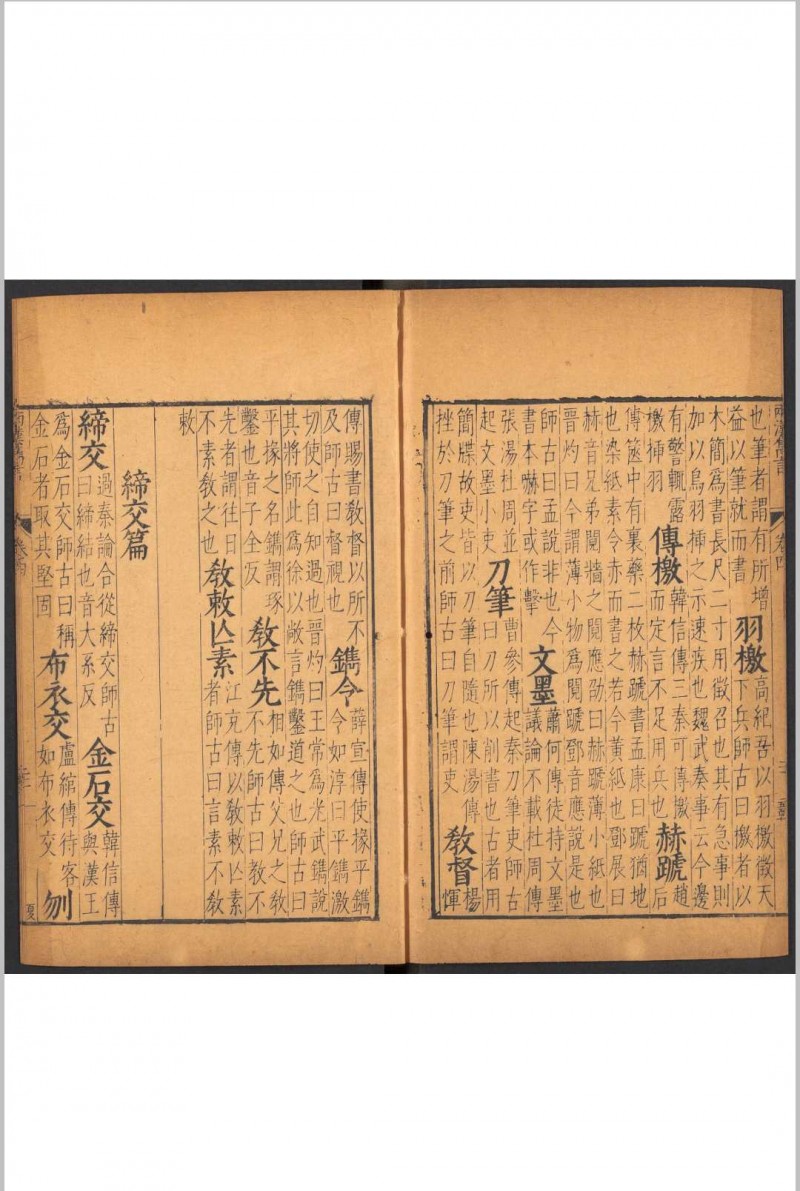 也筆者謂有所增
益以筆就而書
羽檄
高紀吾以羽檄徵天
下兵師古曰檄者以
木簡為書長尺二寸用徵召也其有急事則
加以鳥羽揷之示速疾也魏武奏事云今邊
有警輒露
檄揷羽
傳檄
韓信傳三秦可傳檄
而定言不足用兵也
赫蹏
趙
后
傳篋中有裹藥二枚赫蹏書孟康曰蹏猶地
也染紙素令赤而書之若今黃紙也鄧展曰
赫音兄弟鬩牆之鬩應劭曰赫蹏薄小紙也
晉灼曰今謂薄小物為鬩蹏鄧音應說是也
師古曰孟說非也今
書本嚇字或作擊
文墨
蕭何傳徒持文墨
議論不載杜周傳
張湯杜周並
起文墨小吏
刀筆
曹參傳起秦刀筆吏師古
曰刀所以削書也古者用
簡牒故吏皆以刀筆自隨也陳湯傳
挫於刀筆之前師古曰刀筆謂吏
敎督
楊
惲
傳賜書敎督以所不
及師古曰督視也
鐫令
薛宣傳使掾平鐫
令如淳曰平鐫激
切使之自知過也晉灼曰王常為光武鐫說
其將師此為徐以敞言鐫鑿道之也師古曰
平掾之名鐫謂琢
鑿也音子全反
敎不先
相如傳父兄之敎
不先師古曰敎不
先者謂往日
不素敎之也
敎敕亾素
江充傳以敎敕亾素
者師古曰言素不敎
敕
締交篇
締交
過秦論合從締交師古
曰締結也音大系反
金石交
韓信傳
與漢王
為金石交師古曰稱
金石者取其堅固
布衣交
盧綰傳待客
如布衣交
刎